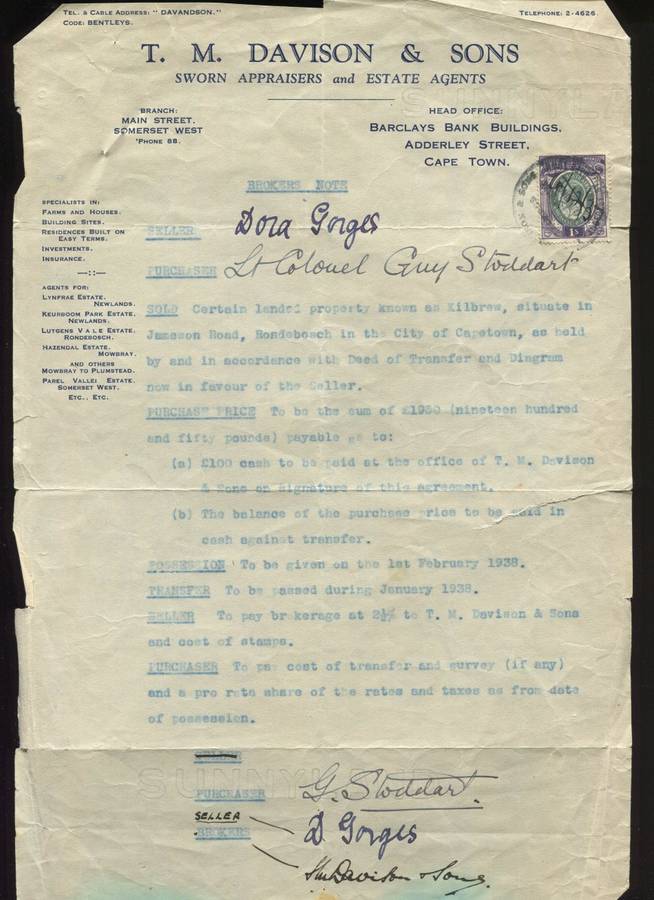 TEL. & CABLE ADDRESS: "DAVANDSON."
CODE: BENTLEYS.
TELEPHONE: 2-4626.
T. M. DAVISON & SONS
SWORN APPRAISERS and ESTATE AGENTS
BRANCH:
MAIN STREET,
SOMERSET WEST
'PHONE 88.
HEAD OFFICE:
BARCLAYS BANK BUILDINGS,
ADDERLEY STREET,
CAPE TOWN.
BROKERS NOTE
SPECIALISTS IN:
FARMS AND HOUSES.
BUILDING SITES.
RESIDENCES BUILT ON
EASY TERMS.
INVESTMENTS.
INSURANCE.
—::—
AGENTS FOR:
LYNFRAE ESTATE.
NEWLANDS.
KEURBOOM PARK ESTATE.
NEWLANDS.
LUTGENS VALE ESTATE.
RONDEBOSCH.
HAZENDAL ESTATE.
MOWBRAY.
AND OTHERS
MOWBRAY TO PLUMSTEAD.
PAREL VALLEI ESTATE.
SOMERSET WEST.
ETC., ETC.
SELLER Dora Gorges
PURCHASER Lt Colonel Guy Stoddart
SOLD Certain landed property known as Kilbrew, situate in
Jameson Road, Rondebosch in the City of Capetown, as held
by and in accordance with Deed of Transfer and Diagram
now in favour of the Seller.
PURCHASE PRICE To be the sum of £1950 (nineteen hundred
and fifty pounds) payable as to:
(a) £100 cash to be paid at the office of T. M. Davison
& Sons on signature of this agreement.
(b) The balance of the purchase price to be paid in
cash against transfer.
POSSESSION To be given on the 1st February 1938.
TRANSFER To be passed during January 1938.
SELLER To pay brokerage at 2½% to T. M. Davison & Sons
and cost of stamps.
PURCHASER To pay cost of transfer and survey (if any)
and a pro rata share of the rates and taxes as from date
of possession.
SELLER
PURCHASER G. Stoddart.
SELLER D. Gorges
BROKERS T M Davison & Sons.
SUNNYL